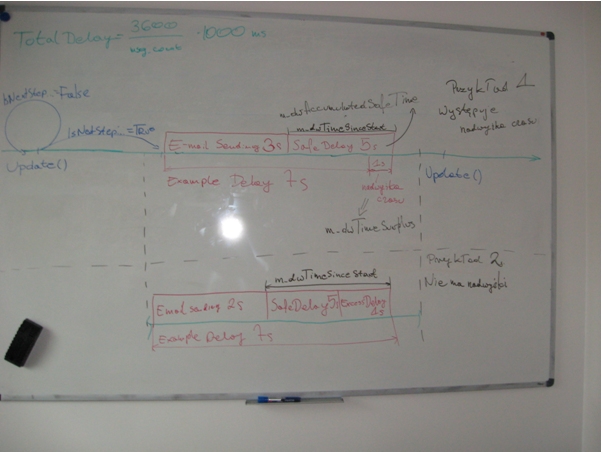 TotalDelay = 3600 / msg.count · 1000 ms
bNextStep = False
IsNextStep = True
Update()
m_dwAccumulatedSafeTime
m_dwTimeSinceStart
E-mail Sending 3s
SafeDelay 5s
Example Delay 7s
1s
nadwyżka
czasu
m_dwTimeSurplus
Przykład 1
Występuje
nadwyżka czasu
Update()
m_dwTimeSinceStart
Email sending 2s
SafeDelay 5s
Delay
Example Delay 7s
Przykład 2
Nie ma nadwyżki